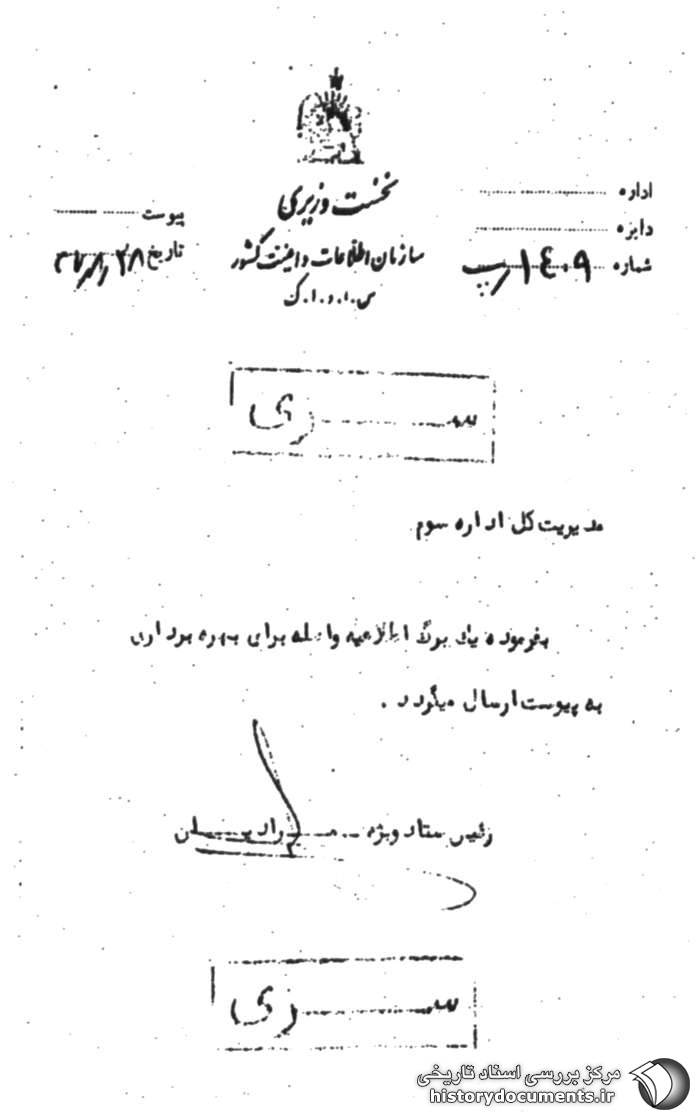 نخست وزیری
سازمان اطلاعات و امنیت کشور
س.ا.و.ا.ک
اداره
دایره
شماره ۱۴۰۹ پ
پیوست
تاریخ ۲۸
ســـــری
مدیریت کل اداره سوم
بفرموده یک برگ اطلاعیه واصله برای بهره برداری
به پیوست ارسال میگردد .
رئیس ستاد ویژه ـ
ســـــری
مرکز بررسی اسناد تاریخی
historydocuments.ir